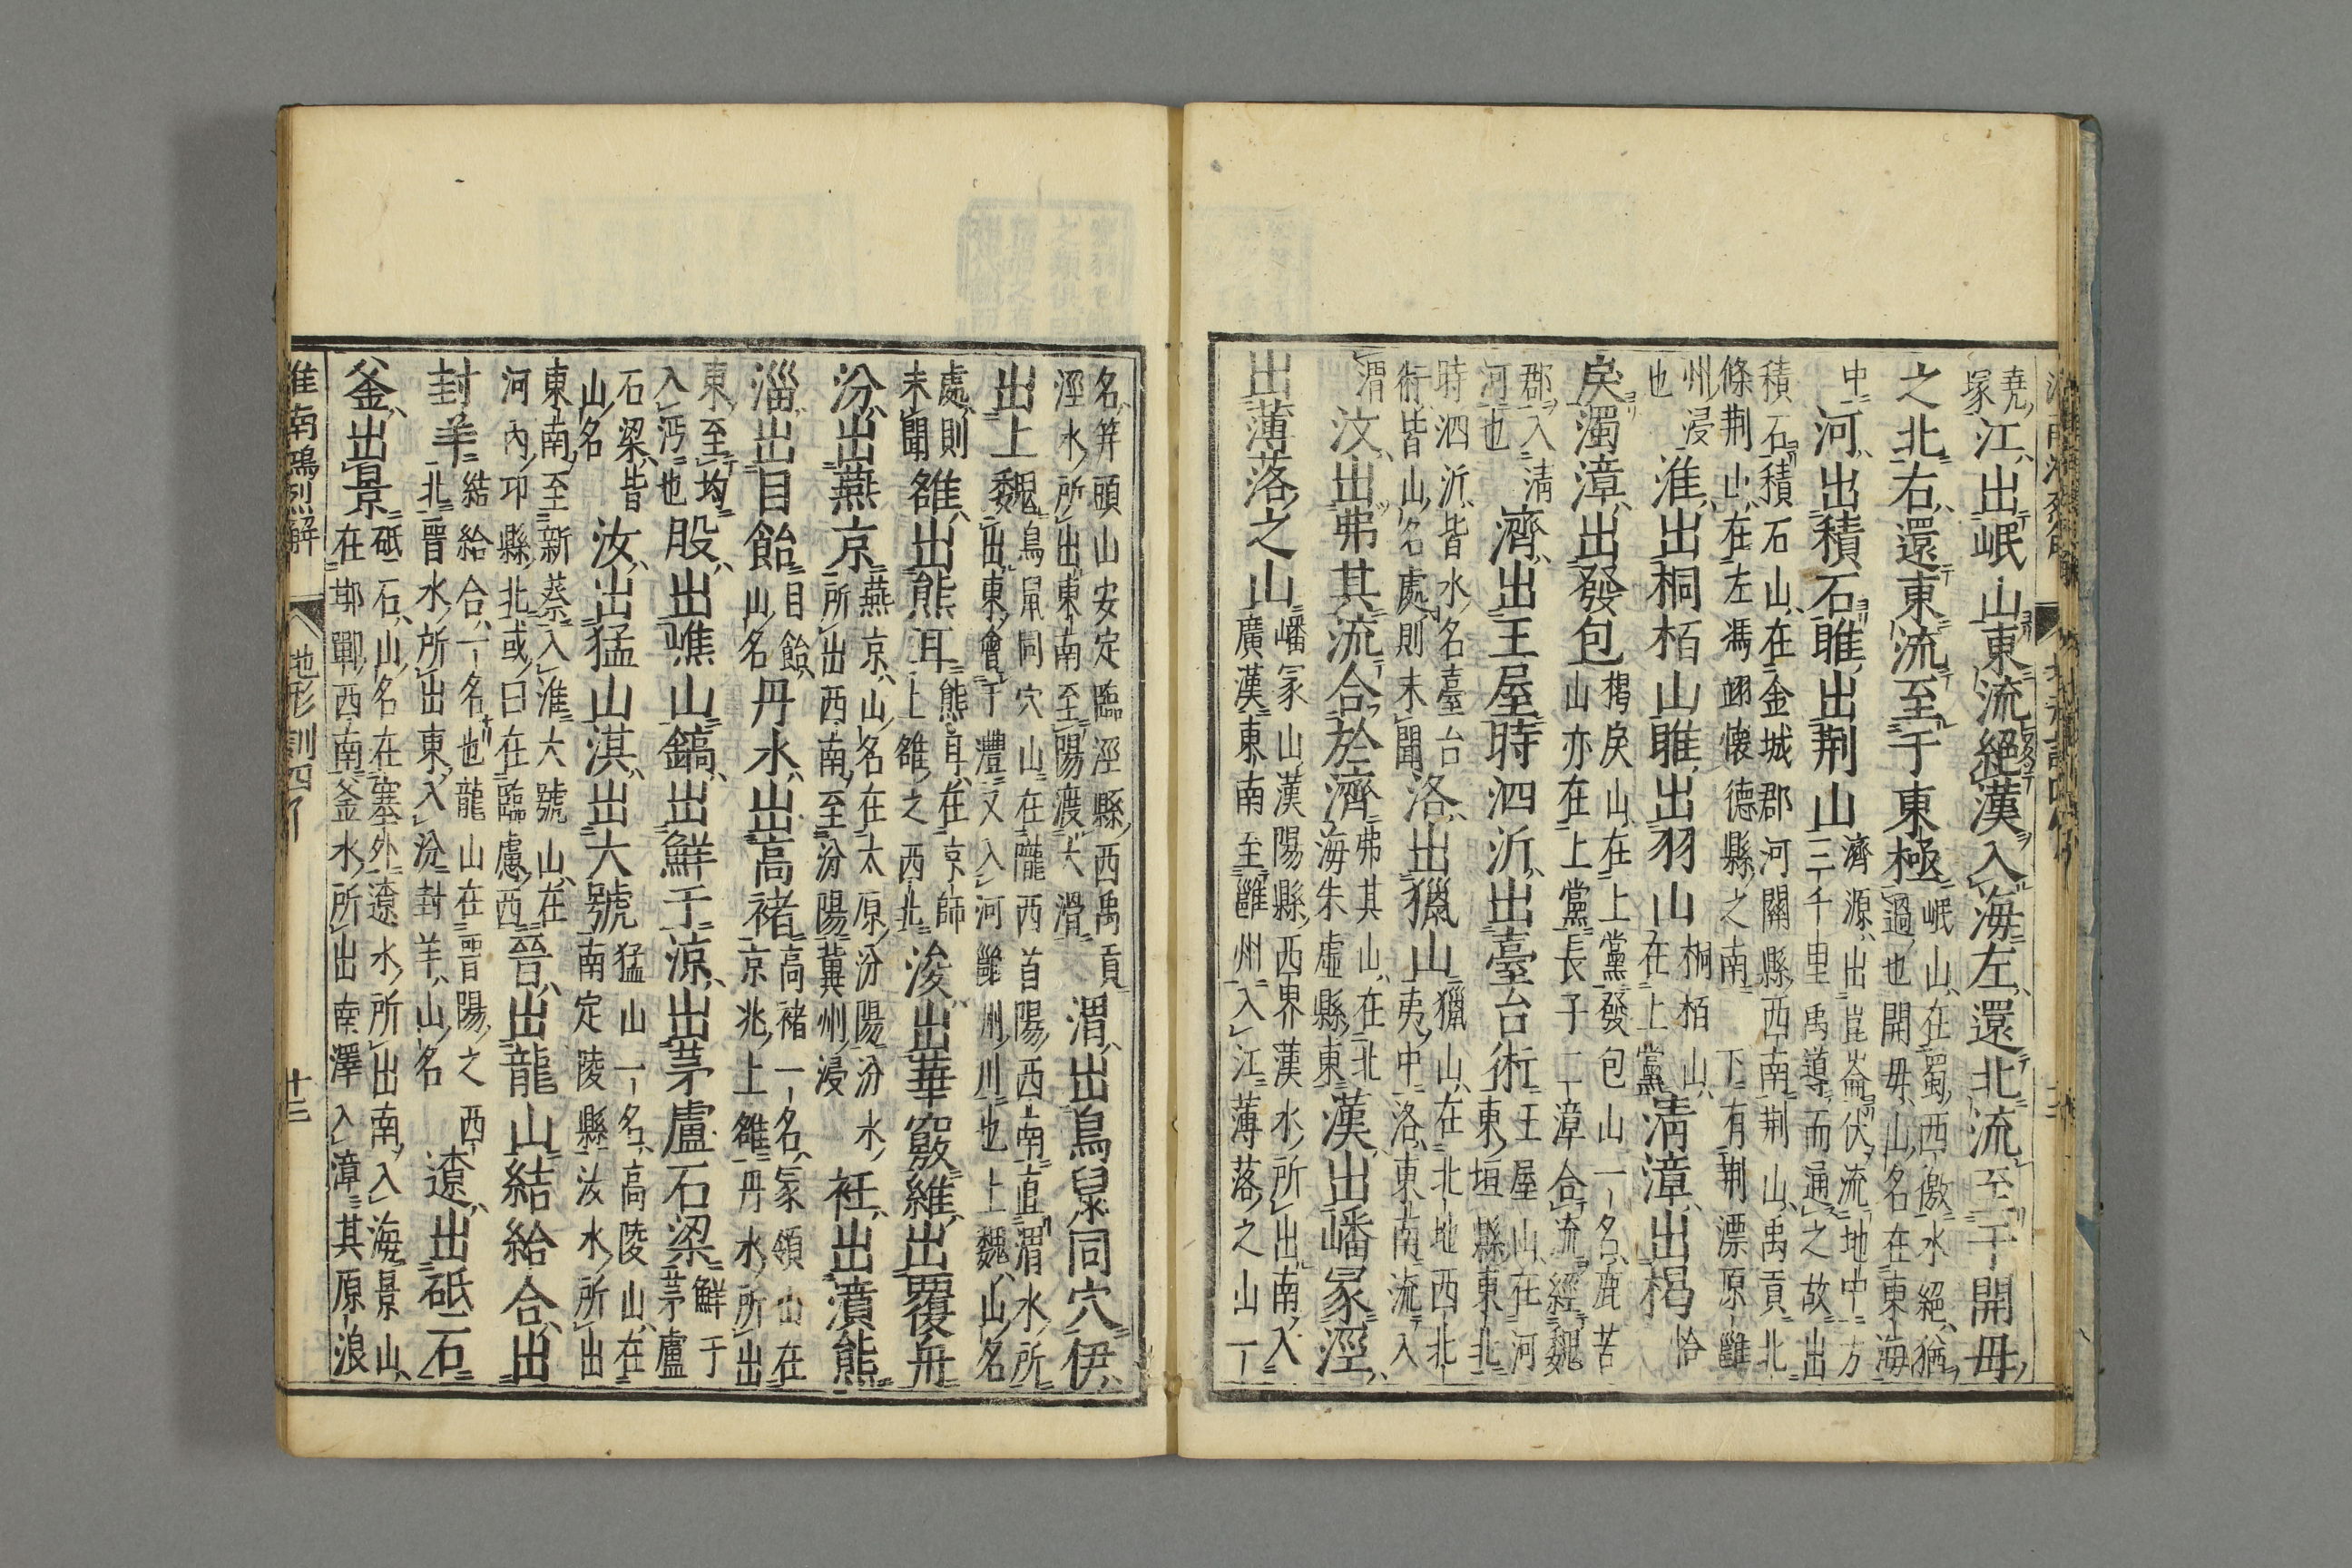 堯冢江出岷山東流絕漢入海左還北流至于開毋
之北右還東流至于東極岷山在蜀西徼水絕猶過也開毋山名在東海
中河出積石睢出荆山濟源出崑崙伏流地中方三千里禹導而通之故出
積石積石山在金城郡河關縣西南荆山禹貢北條荆山在左馮翊懷德縣之南下有荆漂原雝
州浸也淮出桐栢山睢出羽山桐栢山在上黨清漳出楬恰
戾濁漳出發包楬戾山在上黨發包山一名鹿苦山亦在上黨長子二漳合流經魏
郡入清河也濟出王屋時泗沂出臺台術王屋山在河東垣縣東北
時泗沂皆水名臺台術皆山名處則未聞洛出獵山獵山在北地西北夷中洛東南流入
渭汶出弗其流合於濟弗其山在北海朱虛縣東漢出嶓冢涇
出薄落之山嶓冢山漢陽縣西界漢水所出南入廣漢東南至雝州入江薄落之山一
名笄頭山安定臨涇縣西禹貢涇水所出東南至陽渡大渭渭出鳥鼠同穴伊
出上魏鳥鼠同穴山在隴西首陽西南直渭水所出東會于灃又入河雝州川也上魏山名
處則未聞雒出熊耳熊耳在京師上雒之西北浚出華竅維出覆舟
汾出燕京燕京山名在太原汾陽汾水所出西南至汾陽冀州浸衽出濆熊
淄出目飴目飴山名丹水出高褚高褚一名冢領山在京兆上雒丹水所出
東至均入沔也股出嶕山鎬出鮮于涼出茅盧石梁鮮于茅盧
石梁皆山名汝出猛山淇出大號猛山一名高陵山在南定陵縣汝水所出
東南至新蔡入淮大號山在河內卭縣北或曰在臨慮西晉出龍山結給合出
封羊結給合一名也龍山在晋陽之西北晋水所出東入汾封羊山名遼出砥石
釜出景砥石山名在塞外遼水所出南入海景山在邯鄲西南釜水所出南澤入漳其原浪
淮南鴻烈解
地形訓四
十三